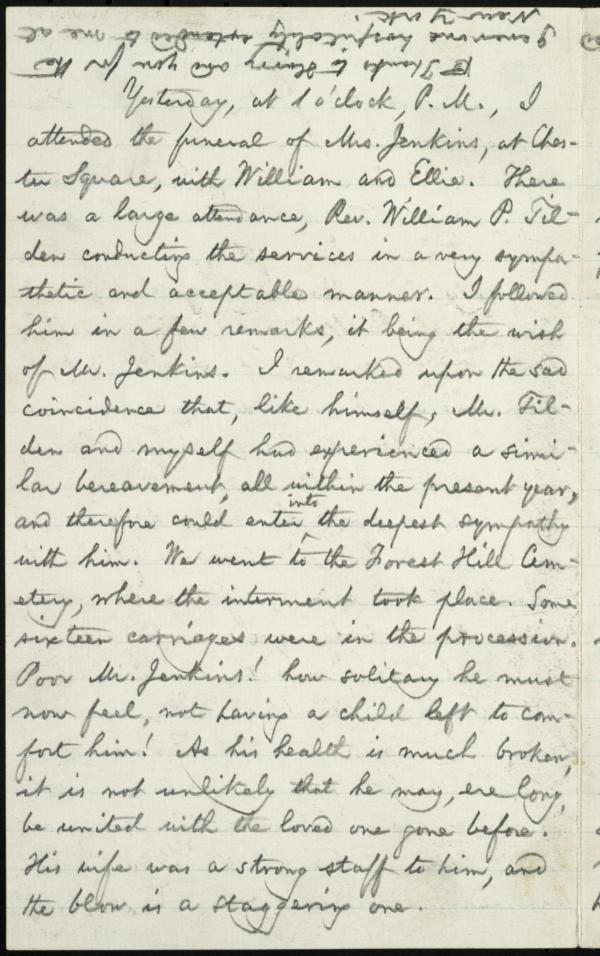 Thanks to Harry and you for the
generous hospitality extended to me at
New York.
Yesterday, at 1 o'clock, P. M., I
attended the funeral of Mrs. Jenkins, at Ches-
ter Square, with William and Ellie. There
was a large attendance, Rev. William P. Til-
den conducting the services in a very sympa-
thetic and acceptable manner. I followed
him in a few remarks, it being the wish
of Mr. Jenkins. I remarked upon the sad
coincidence that, like himself, Mr. Til-
den and myself had experienced a simi-
lar bereavement, all within the present year,
and therefore could enter into the deepest sympathy
with him. We went to the Forest Hill Cem-
etery, where the interment took place. Some
sixteen carriages were in the procession.
Poor Mr. Jenkins! how solitary he must
now feel, not having a child left to com-
fort him! As his health is much broken,
it is not unlikely that he may, ere long,
be united with the loved one gone before.
His wife was a strong staff to him, and
the blow is a staggering one.